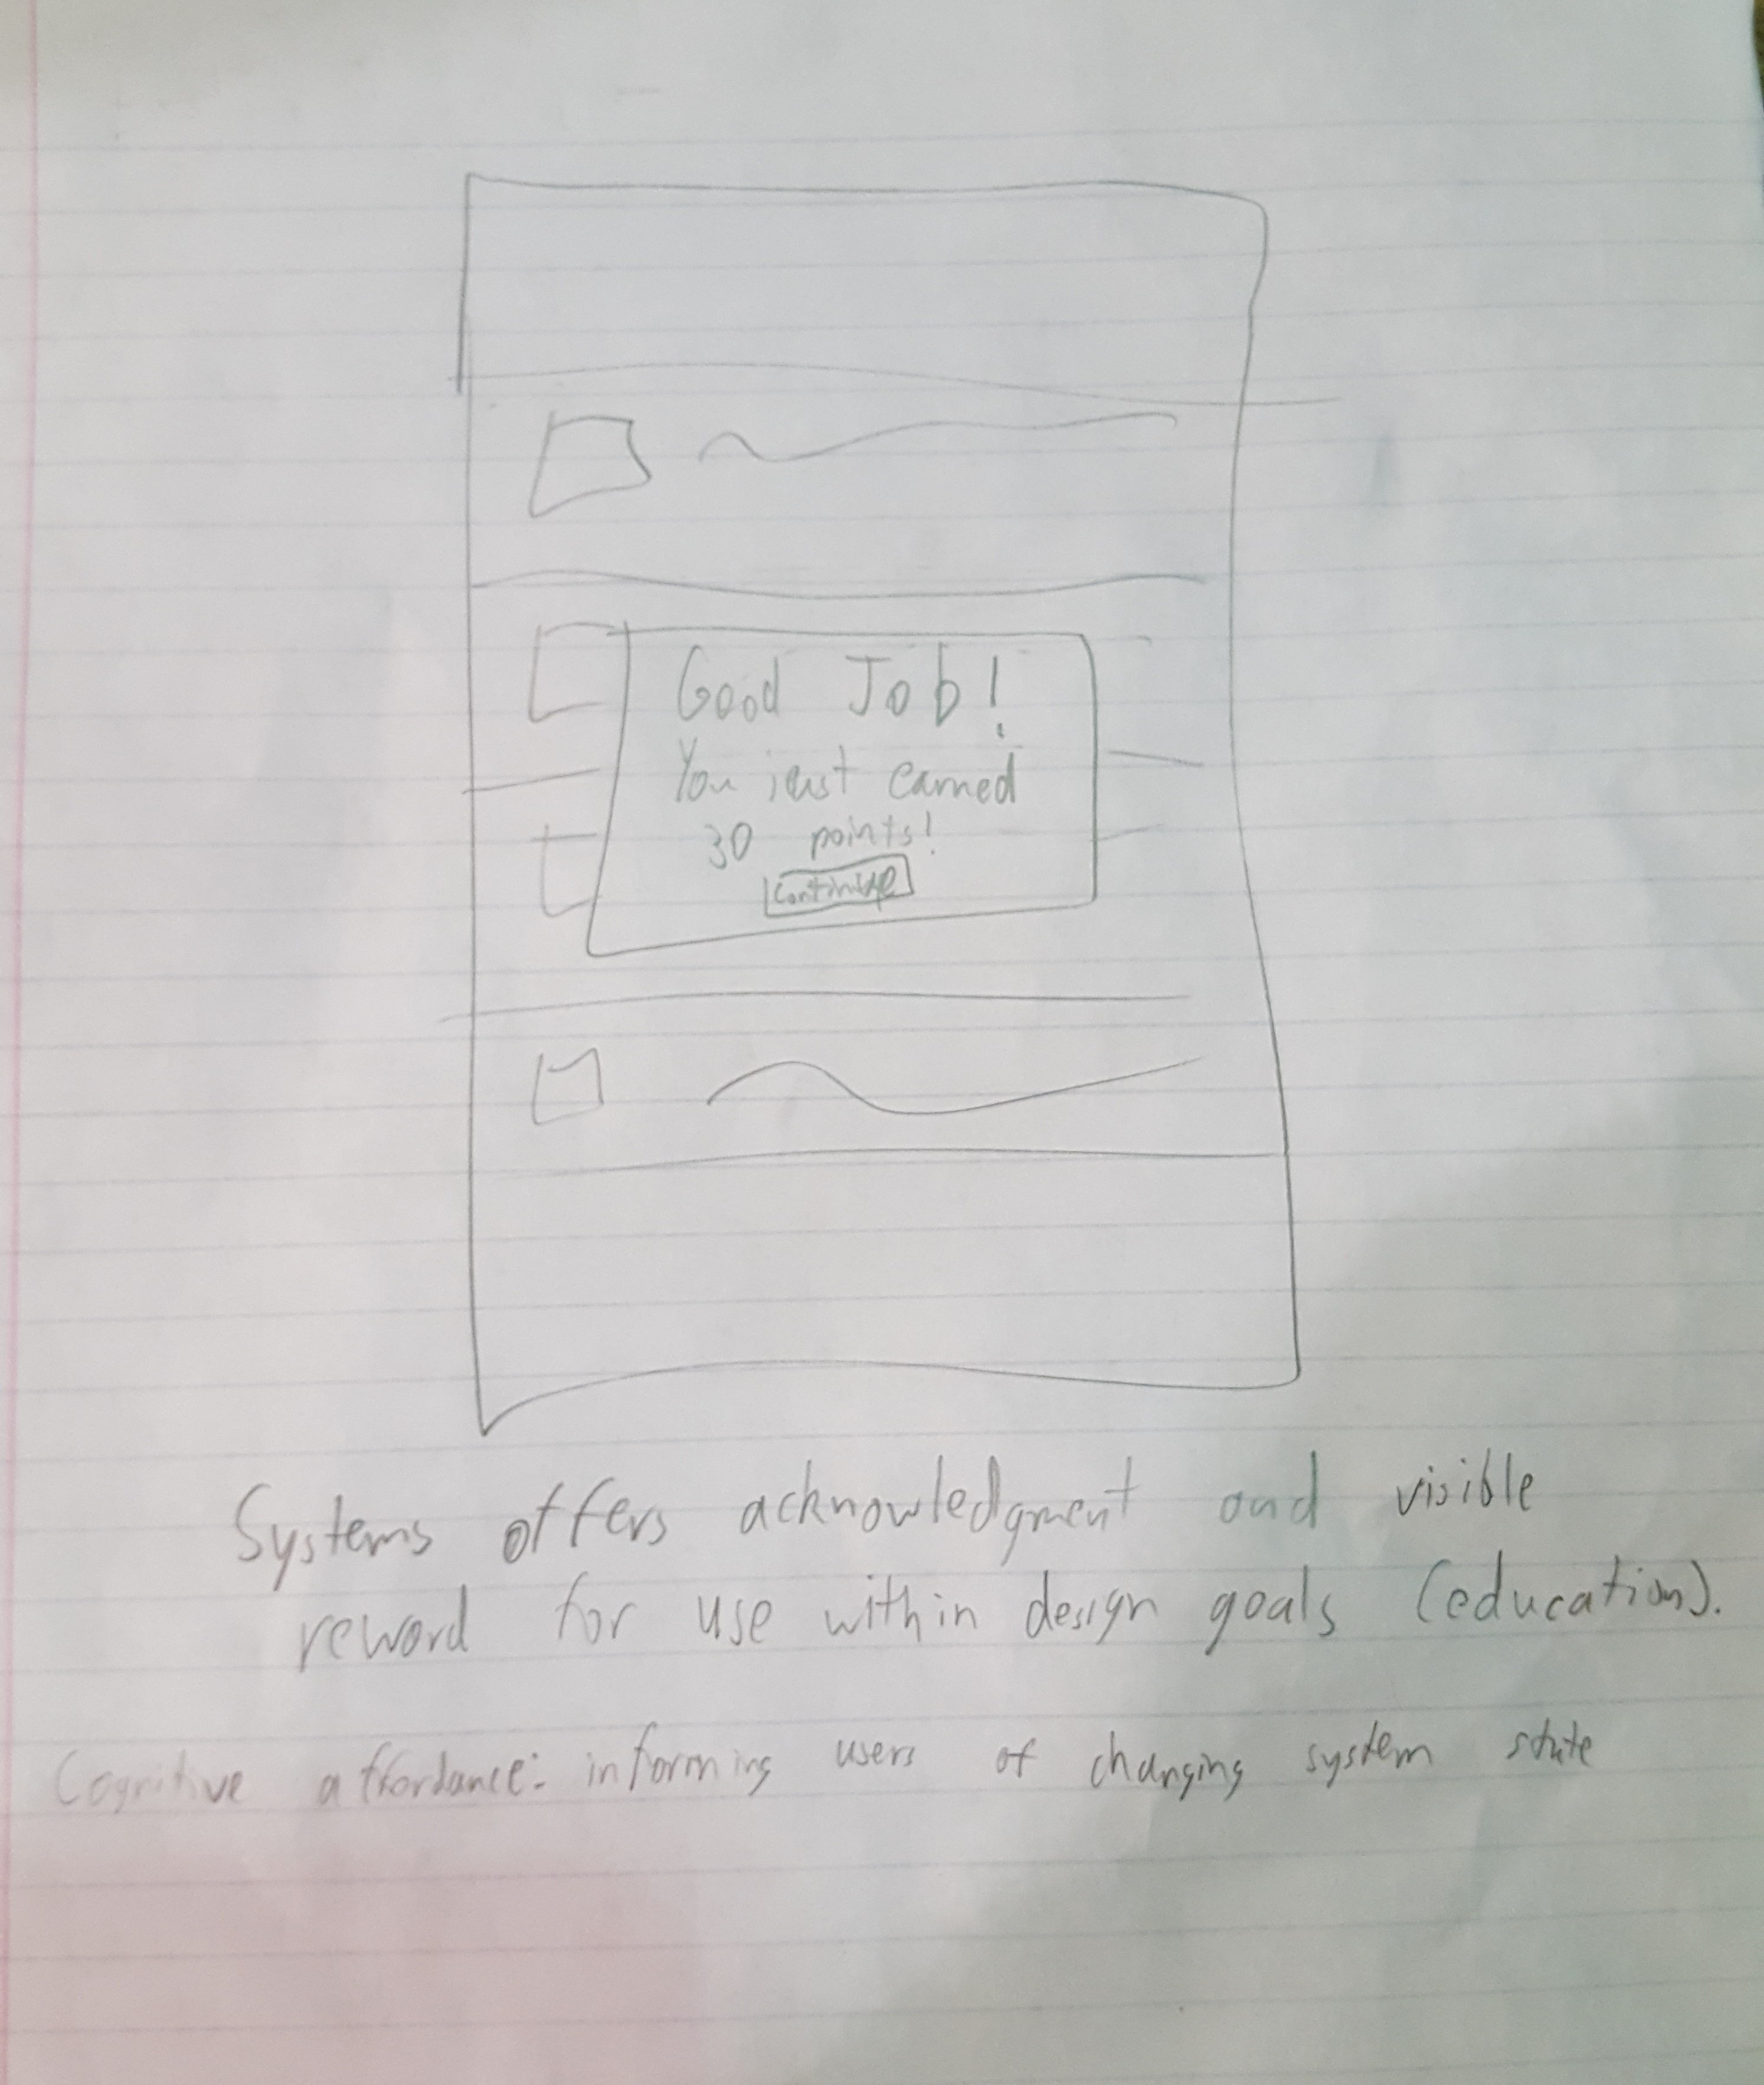 Good Job!
You just earned
30 points!
Continue
Systems offers acknowledgment and visible
reward for use within design goals (education).
Cognitive affordance: informing users of changing system state